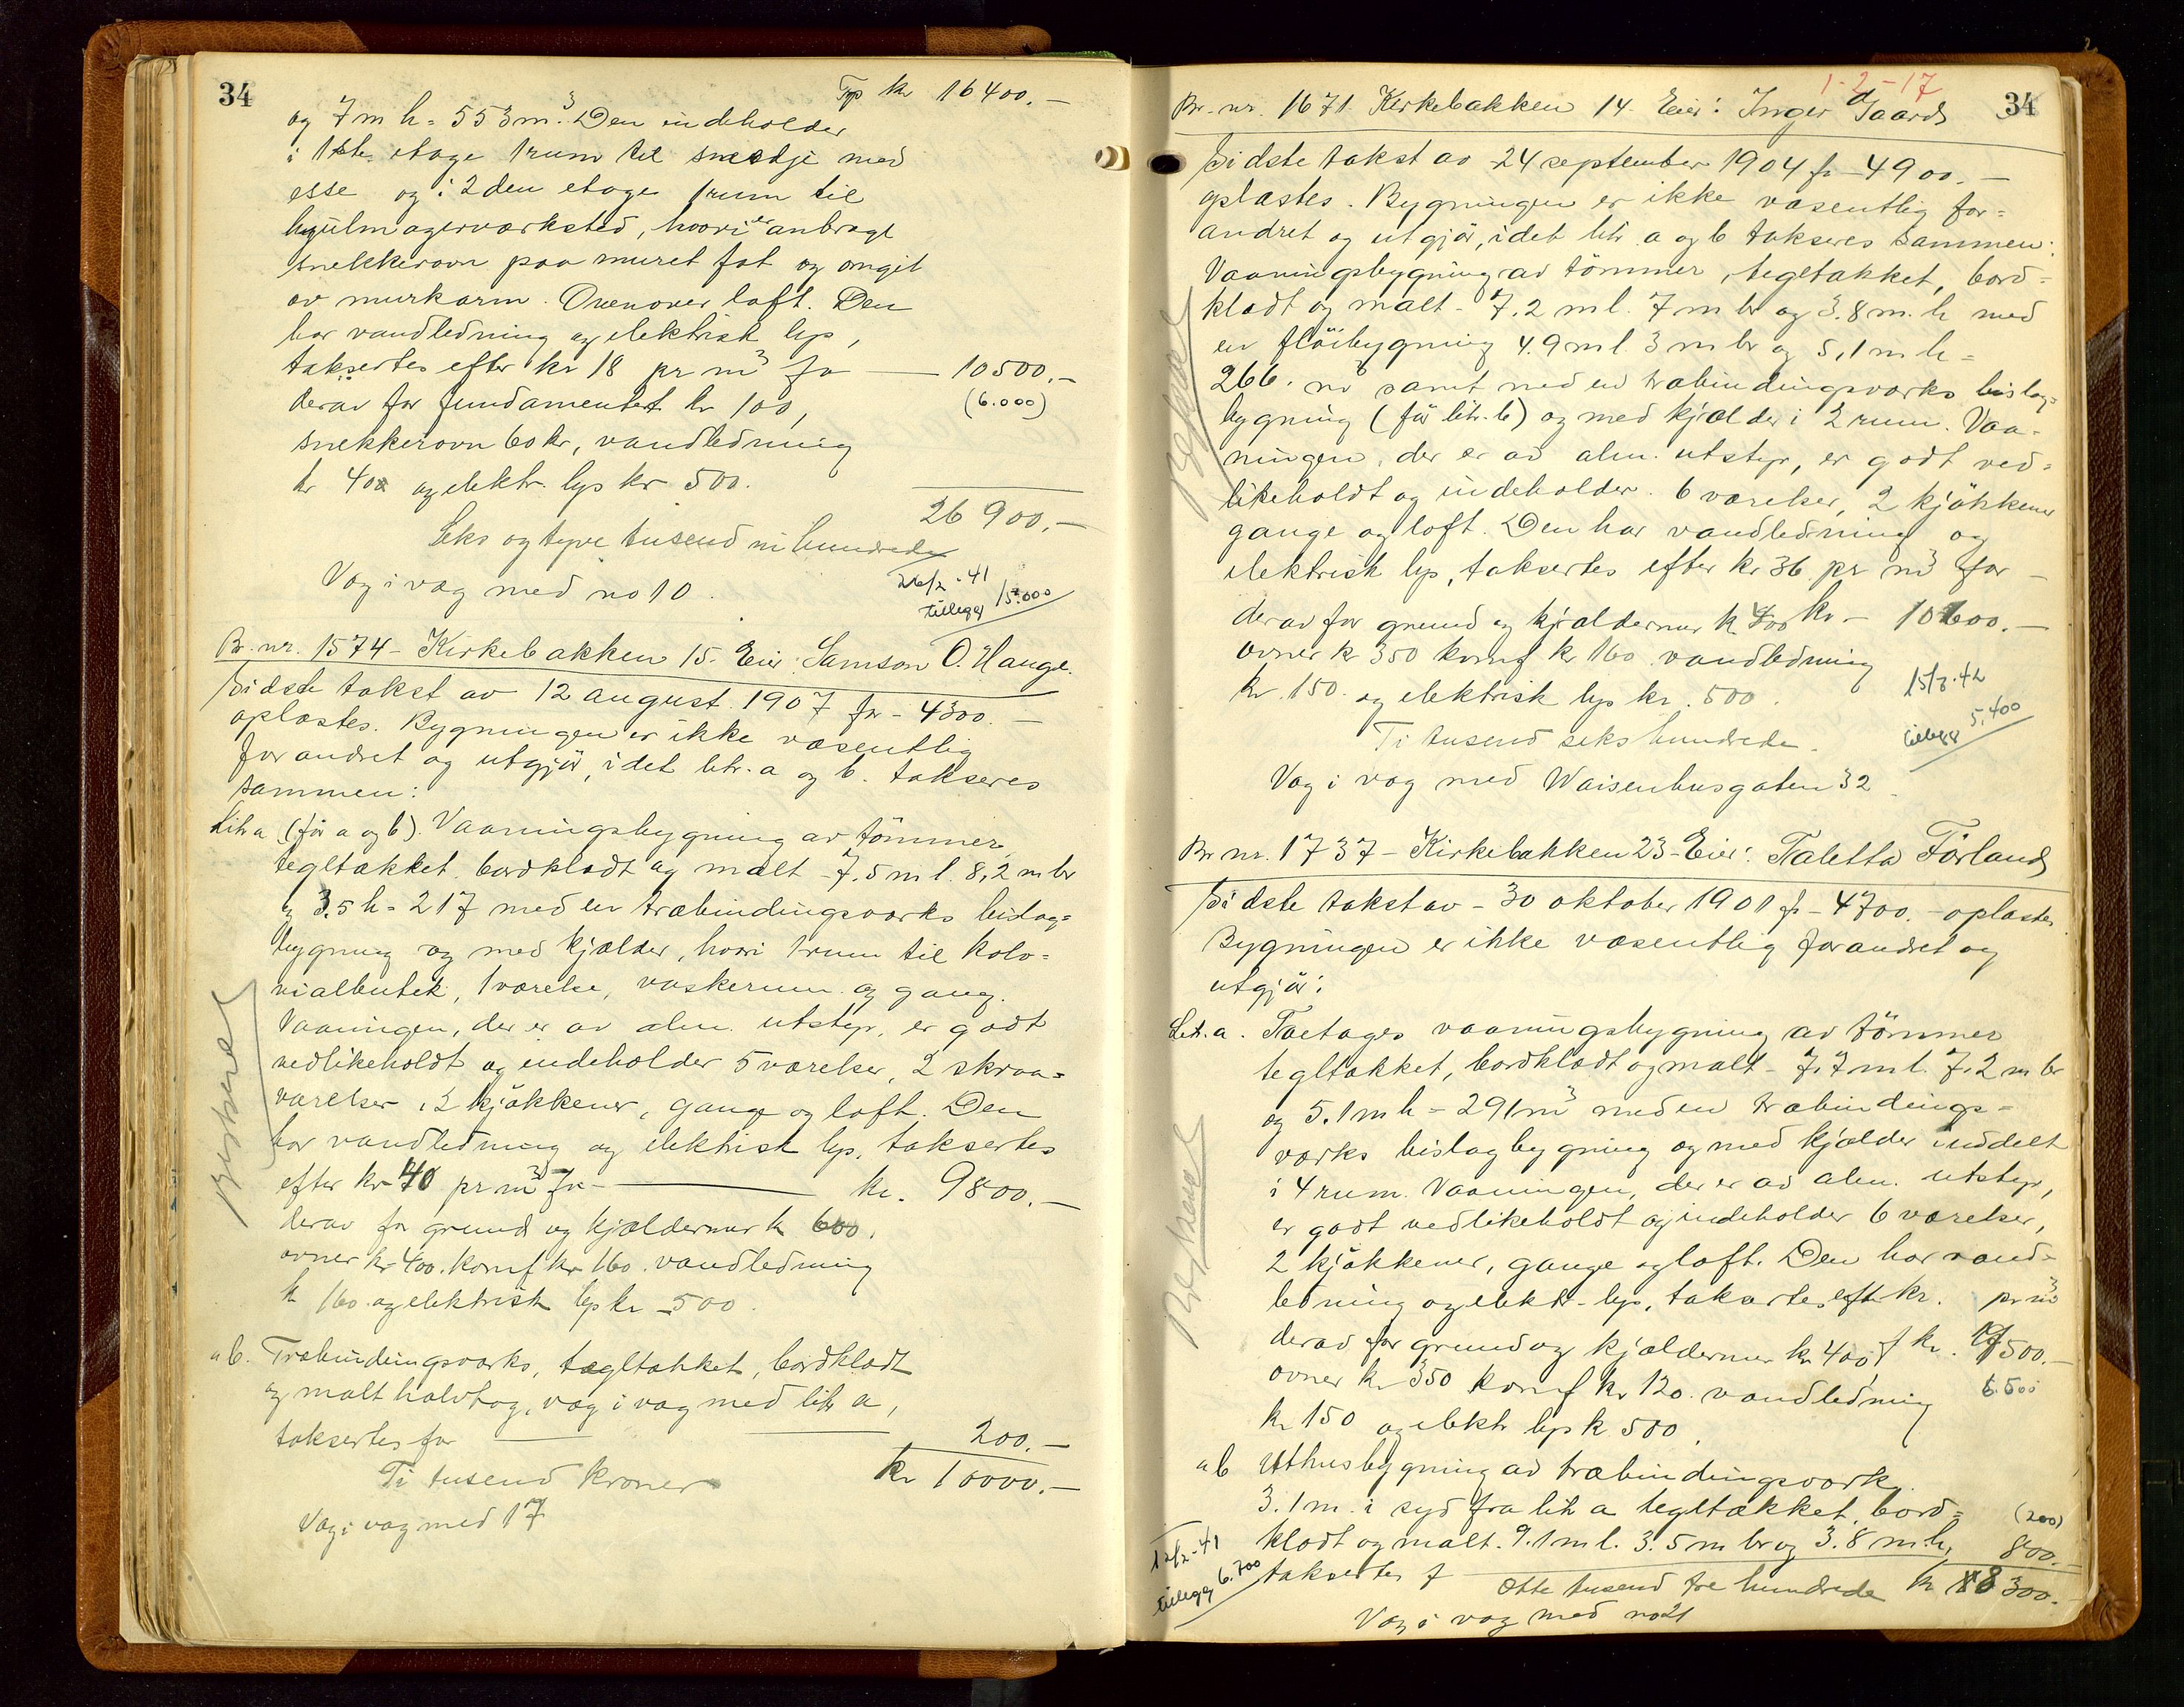 34
Trp kr 16400.-
og 7 m h = 553 m³. Den indeholder
i 1ste etage 1 rum til smedje med
esse og i 2den etage 1 rum til
hjulmagerværksted, hvori er anbragt
snekkerovn paa muret fot og omgit
av murkarm. Ovenover loft. Den
har vandledning og elektrisk lys,
taksertes efter kr 18 pr m³ for — 10500.-
derav for fundamentet kr 100, (6.000)
snekkerovn 60 kr, vandledning
kr 400 og elektr. lys kr 500.
26 900.-
Seks og tyve tusend ni hundrede
Væg i væg med no 10.
26/2-41
tillegg 15.000
Br. nr. 1574 - Kirkebakken 15. Eier: Samson O. Hauge.
Sidste takst av 12 august 1907 for - 4300.-
oplæstes. Bygningen er ikke væsentlig
forandret og utgjör, idet litr. a og b. takseres
sammen:
Litr a (för a og b). Vaaningsbygning av tömmer,
tegltækket, bordklædt og malt - 7.5 m l. 8,2 m br
og 3.5 h = 217 med en træbindingsværks bislag=
bygning og med kjælder, hvori 1 rum til kolo=
nialbutik, 1 værelse, vaskerum og gang.
Vaaningen, der er av alm. utstyr, er godt
vedlikeholdt og indeholder 5 værelser, 2 skraa=
værelser, 2 kjökkener, gange og loft. Den
har vandledning og elektrisk lys, taksertes
efter kr 40 pr m³ for - kr. 9800.-
derav for grund og kjældermur kr 600,
ovner kr 400. komf kr 160. vandledning
kr 160 og elektrisk lys kr 500.
Beskrevet
" b. Træbindingsværks, tegltækket, bordklædt
og malt halvtag, væg i væg med litr a,
taksertes for — 200.-
Ti tusend kroner kr 10000.-
Væg i væg med 17
1-2-17
34
Br. nr. 1671. Kirkebakken 14. Eier: Inger Gaard
Sidste takst av 24 september 1904 for 4900.-
oplæstes. Bygningen er ikke væsentlig for=
andret og utgjör, idet litr. a og b takseres sammen:
Vaaningsbygning av tömmer, tegltækket, bord=
klædt og malt - 7,2 m l. 7 m br og 3.8 m. h med
en flöibygning 4.9 m l. 3 m br og 5,1 m h =
266. m³ samt med en træbindingsværks bislag=
bygning (för litr. b) og med kjælder i 2 rum. Vaa=
ningen, der er av alm. utstyr, er godt ved=
likeholdt og indeholder 6 værelser, 2 kjökkener
gange og loft. Den har vandledning og
elektrisk lys, taksertes efter kr 36 pr m³ for -
derav for grund og kjældermur kr 400 kr - 10600.-
ovner kr 350 komf kr 160 vandledning
kr. 150. og elektrisk lys kr. 500.
15/8.42
tillegg 5,400
Ti tusend seks hundrede.
Væg i væg med Waisenhusgaten 32.
Br nr. 1737 - Kirkebakken 23 - Eier: Taletta Förland
Sidste takst av - 30 oktober 1901 for - 4700.- oplæstes
Bygningen er ikke væsentlig forandret og
utgjör:
Litr. a. Toetages vaaningsbygning av tömmer
tegltækket, bordklædt og malt - 7,7 m l. 7.2 m br
og 5.1 m h = 291 m³ med en træbindings=
værks bislagbygning og med kjælder inddelt
i 4 rum. Vaaningen, der er av alm. utstyr,
er godt vedlikeholdt og indeholder 6 værelser,
2 kjökkener, gange og loft. Den har vand=
ledning og elektr. lys, taksertes efter kr. pr m³
derav for grund og kjældermur kr 400, f kr. 7500.-
ovner kr 350 komf kr 120. vandledning 6.500
kr 150 og elektr lys kr 500.
" b Uthusbygning av træbindingsværk
3.1 m. i syd fra litr a tegltækket, bord= (200)
klædt og malt. 9.1 m l. 3.5 m br og 3.8 m h, 800.-
taksertes f
12/2-41
tillegg 6.700
Otte tusend tre hundrede kr 8300.-
Væg i væg med no 21